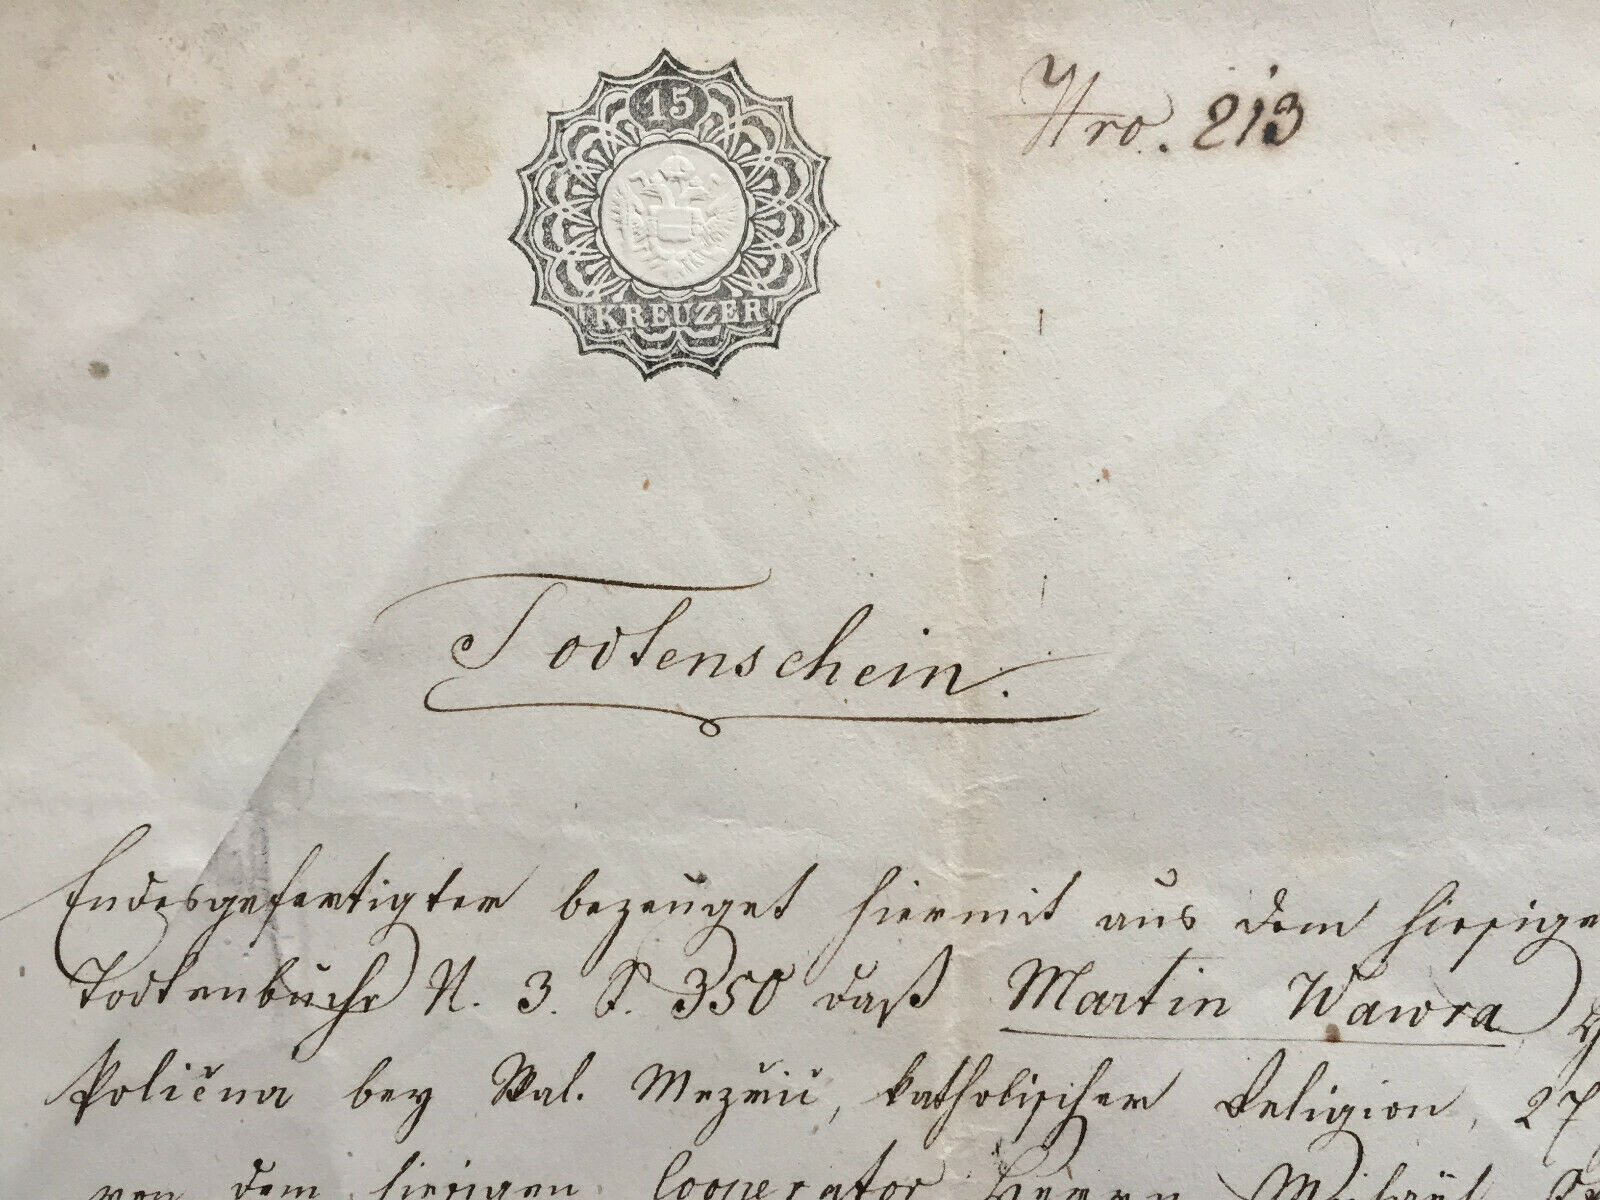 15
KREUZER
Nro. 213
Todtenschein.
Endesgefertigter bezeuget hiermit aus dem hiesige
Todtenbuche N. 3. S. 350 daß Martin Wawra
Polična bey Wal. , katholischer Religion, 27
von dem hiesigen Cooperator Herrn